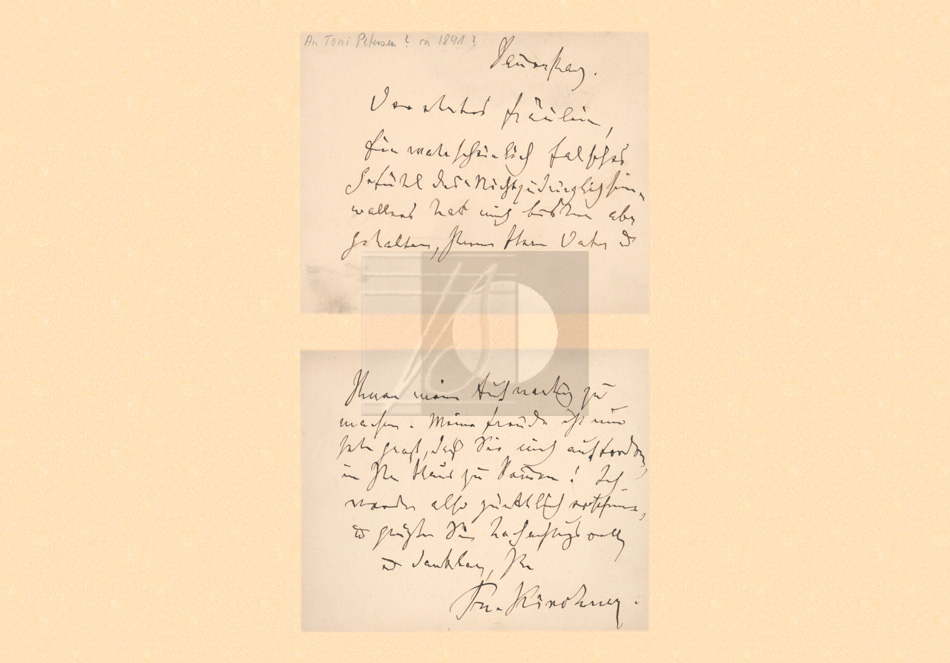 An Toni Petersen? ca 1891?
Donnerstag.
Verehrtes Fräulein,
Ein wahrscheinlich falsches
Gefühl des
hat mich bisher abge
gehalten, Ihrem Herrn Vater &
Ihnen meine Aufwartung zu
machen. Meine Freude ist nun
sehr groß, daß Sie mich auffordern,
in Ihr Haus zu kommen! Ich
werde also pünktlich erscheinen,
& grüße Sie hochachtungsvoll
& dankbar, Ihr
Kirchner.